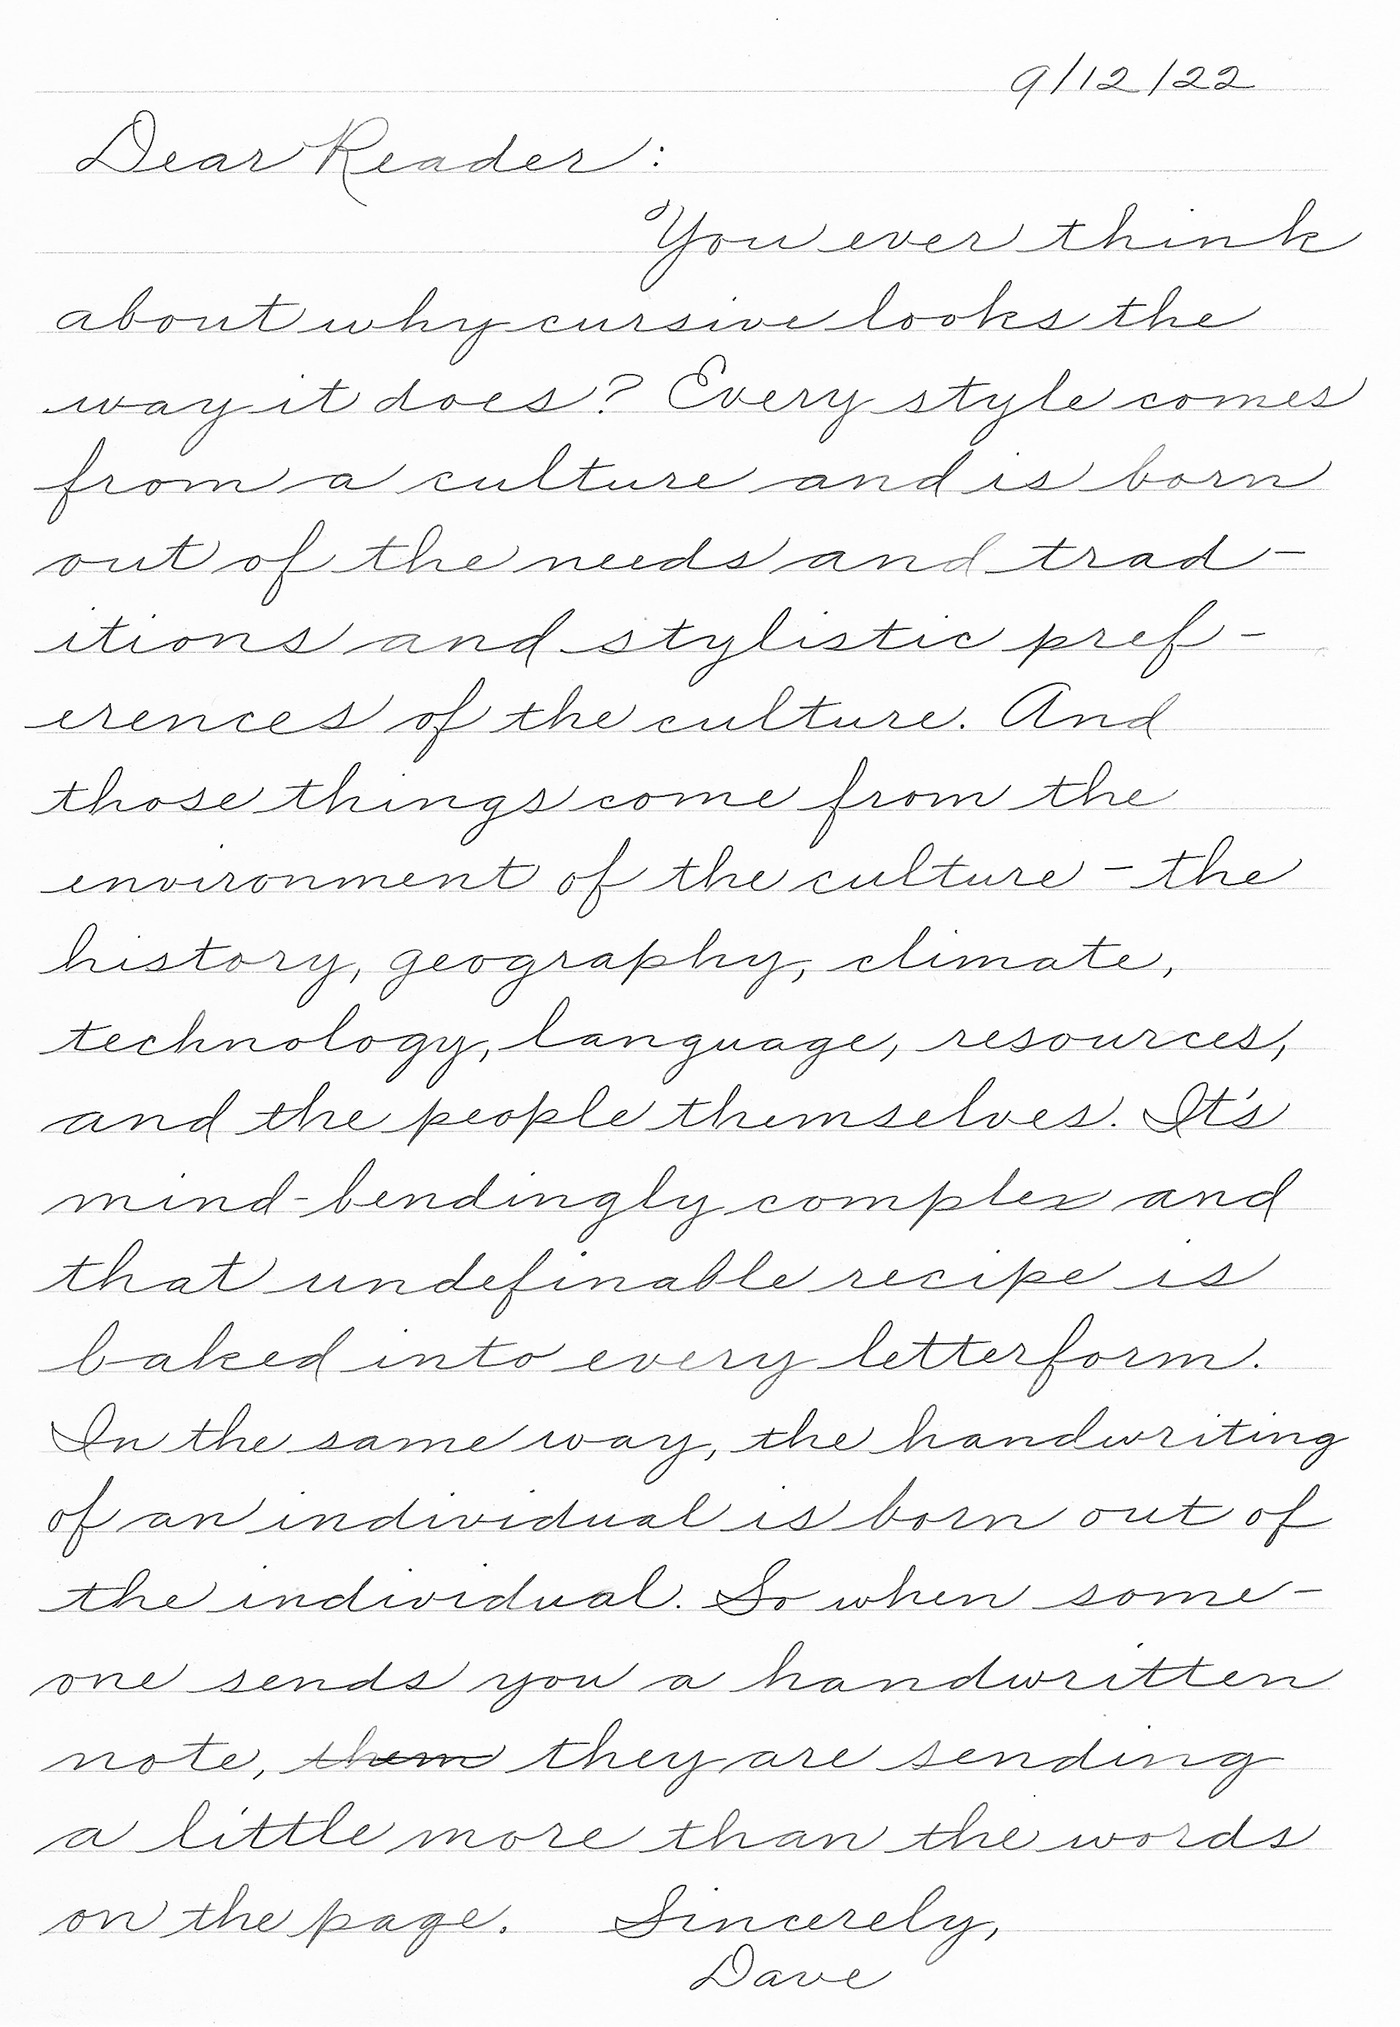 9/12/22
Dear Reader:
You ever think
about why cursive looks the
way it does? Every style comes
from a culture and is born
out of the needs and trad-
itions and stylistic pref-
erences of the culture. And
those things come from the
environment of the culture - the
history, geography, climate,
technology, language, resources,
and the people themselves. It's
mind-bendingly complex and
that undefinable recipe is
baked into every letterform.
In the same way, the handwriting
of an individual is born out of
the individual. So when some-
one sends you a handwritten
note, them they are sending
a little more than the words
on the page. Sincerely,
Dave